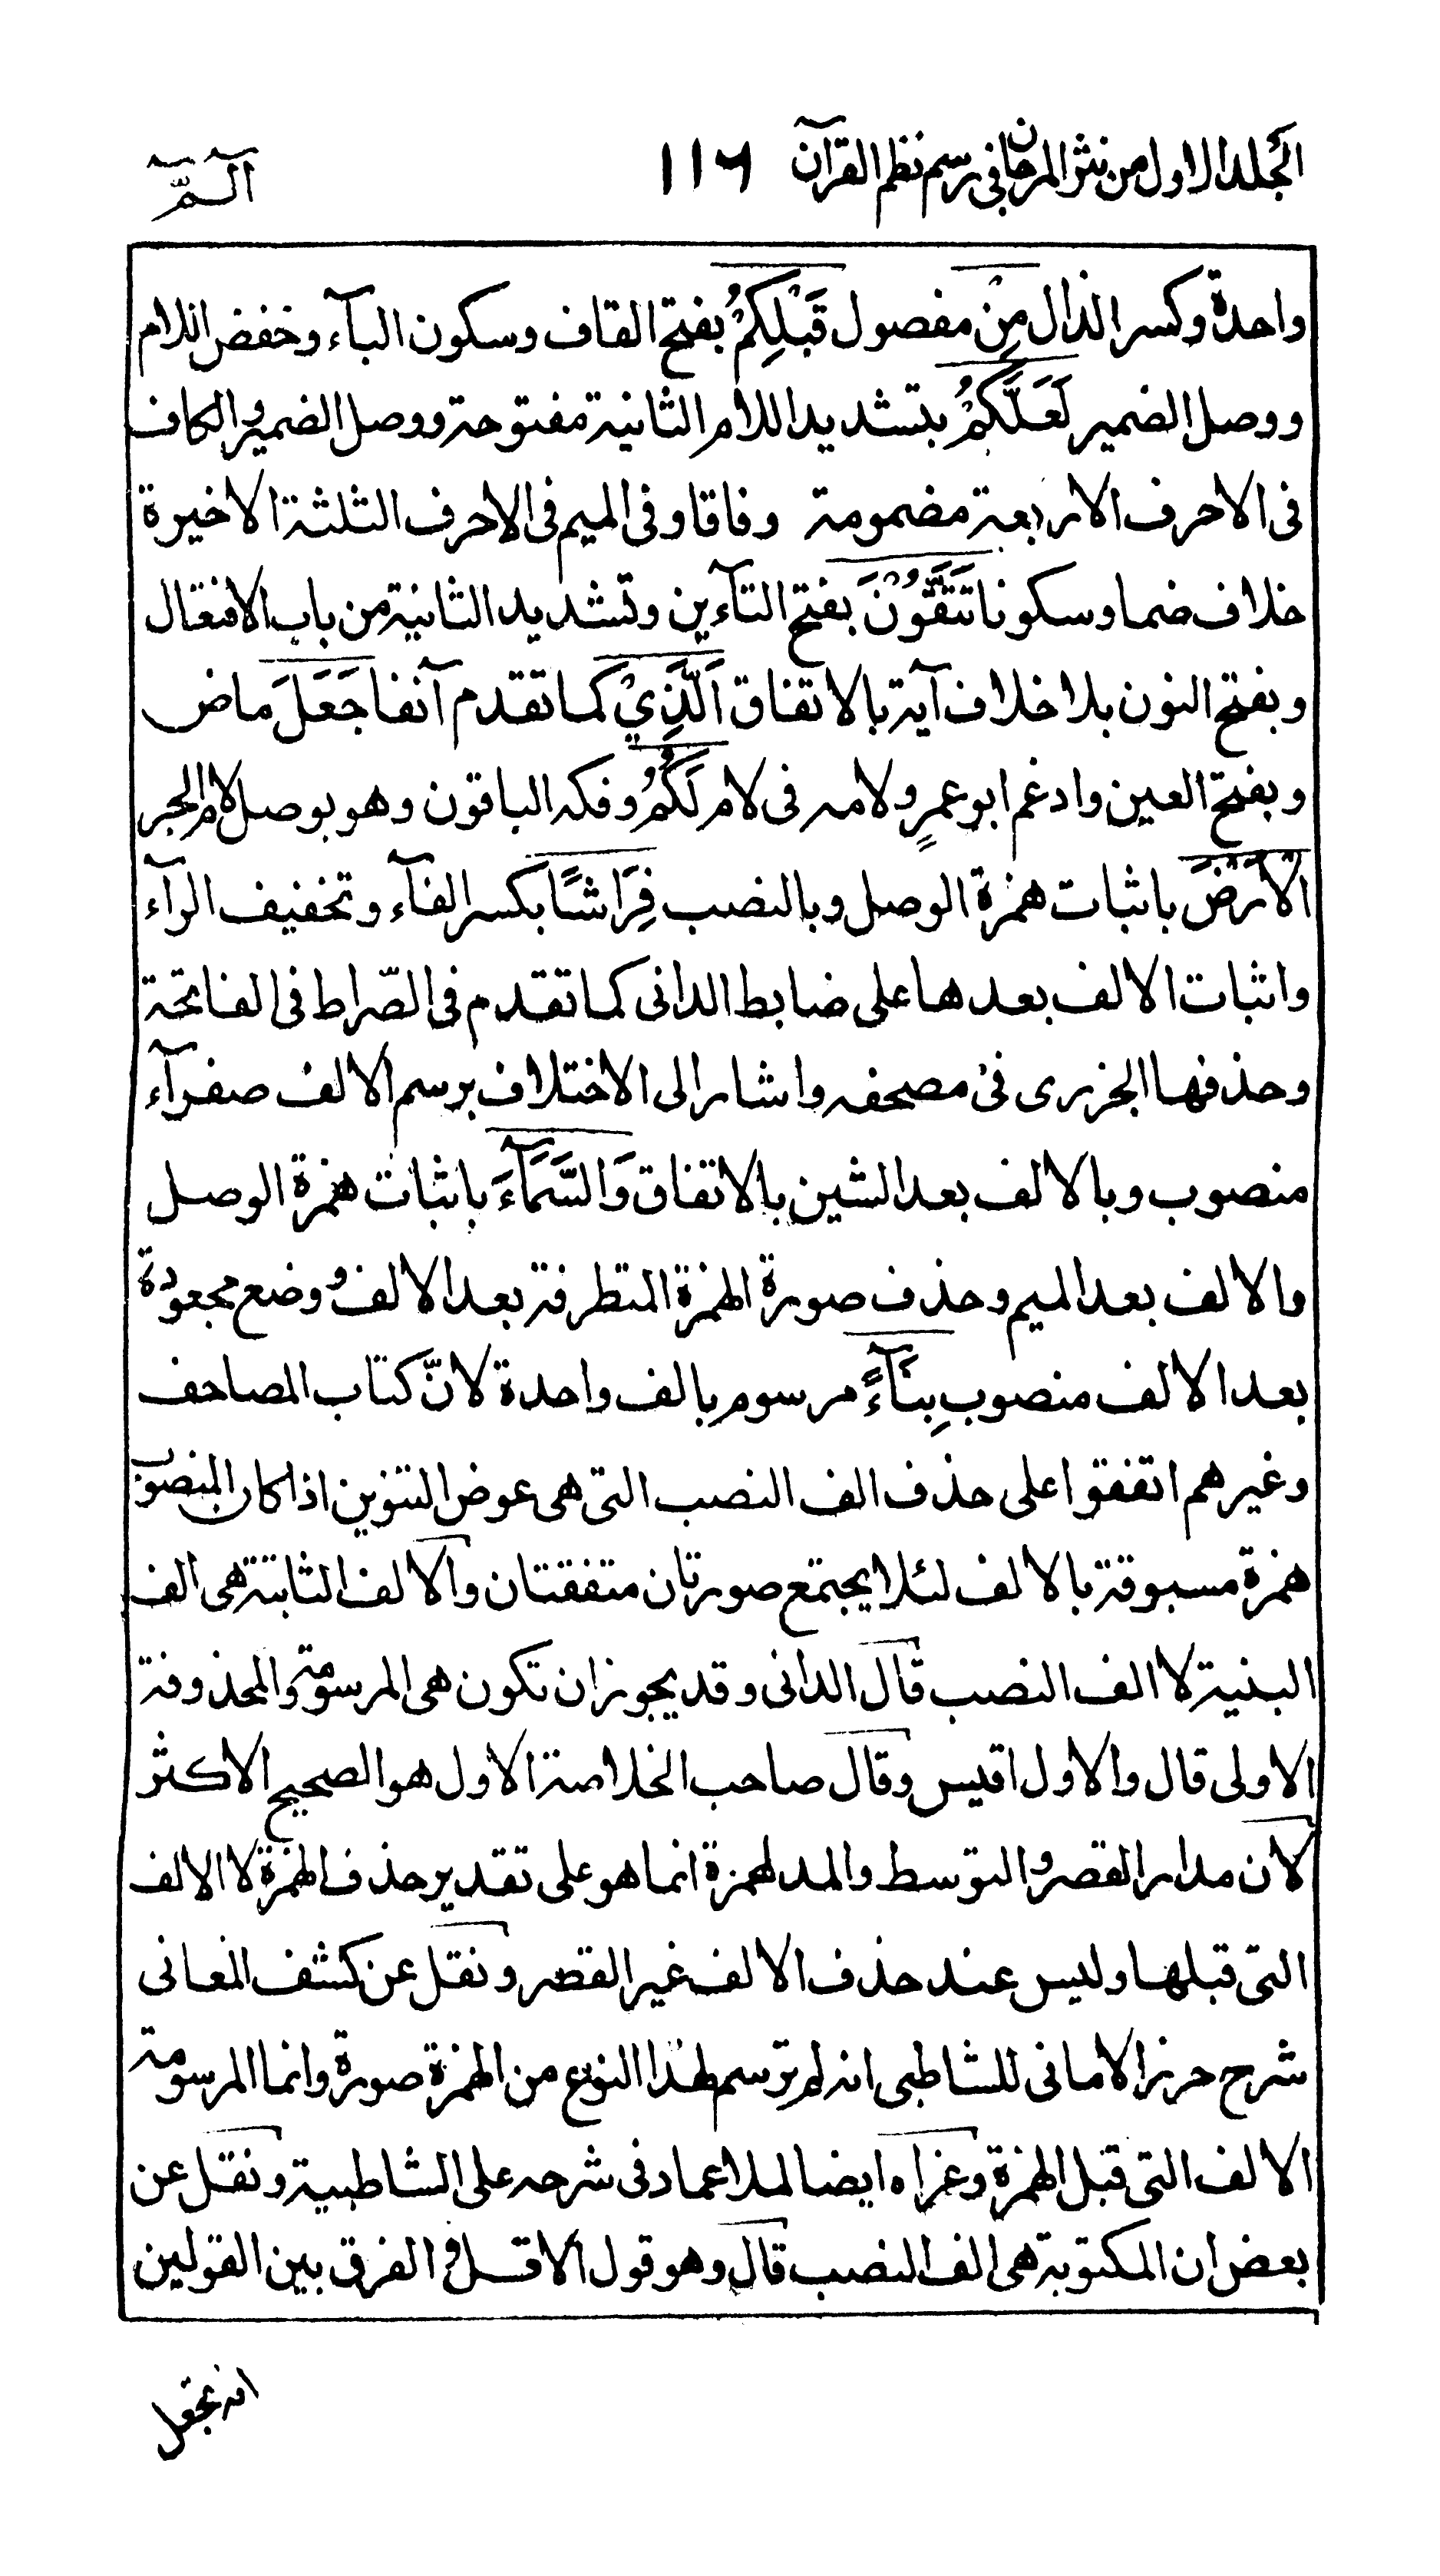 المجلد الاول من نثر المرجان فى رسم نظم القرآن ١١٦ آلٓمّٓ
واحدة وكسر الذال مِنْ مفصول قَبْلِكُمْ بفتح القاف وسكون البآء وخفض اللام
ووصل الضمير لَعَلَّكُمْ بتشديد اللام الثانية مفتوحة ووصل الضمير والكاف
فى الاحرف الاربعة مضمومة وفاقا وفى الميم فى الاحرف الثلثة الاخيرة
خلاف ضما وسكونا تَتَّقُوْنَ بفتح التآءين وتشديد الثانية من باب الافتعال
وبفتح النون بلا خلاف آية بالاتفاق اَلَّذِيْ كما تقدم آنفا جَعَلَ ماض
وبفتح العين وادغم ابو عمرٍو لامه فى لام لَكُمُ وفكه الباقون وهو بوصل لام الجر
الْاَرْضَ باثبات همزة الوصل وبالنصب فِرَاشًا بكسر الفآء وتخفيف الرآء
واثبات الالف بعدها على ضابط الدانى كما تقدم فى الصّراط فى الفاتحة
وحذفها الجزرى فى مصحفه واشار الى الاختلاف برسم الالف صفرآء
منصوب وبالالف بعد الشين بالاتفاق وَالسَّمَآءَ باثبات همزة الوصل
والالف بعد الميم وحذف صورة الهمزة المتطرفة بعد الالف ووضع مجعودة
بعد الالف منصوب بِنَآءً مرسوم بالف واحدة لانّ كتاب المصاحف
وغيرهم اتفقوا على حذف الف النصب التى هى عوض التنوين اذا كان المنصوب
همزة مسبوقة بالالف لئلا يجتمع صورتان متفقتان والالف الثابتة هى الف
البنية لا الف النصب قال الدانى وقد يجوز ان تكون هى المرسومة والمحذوفة
الاولى قال والاول اقيس وقال صاحب الخلاصة الاول هو الصحيح الاكثر
لان مدار القصر والتوسط والمد لهمزة انما هو على تقدير حذف الهمزة لا الالف
التى قبلها وليس عند حذف الالف غير القصر ونقل عن كشف المعانى
شرح حرز الامانى للشاطبى انه لم ترسم لهذا النوع من الهمزة صورة وانما المرسومة
الالف التى قبل الهمزة وعزاه ايضا لملا عماد فى شرحه على الشاطبية ونقل عن
بعض ان المكتوبة هى الف النصب قال وهو قول الاقل و الفرق بين القولين
انه يجعل